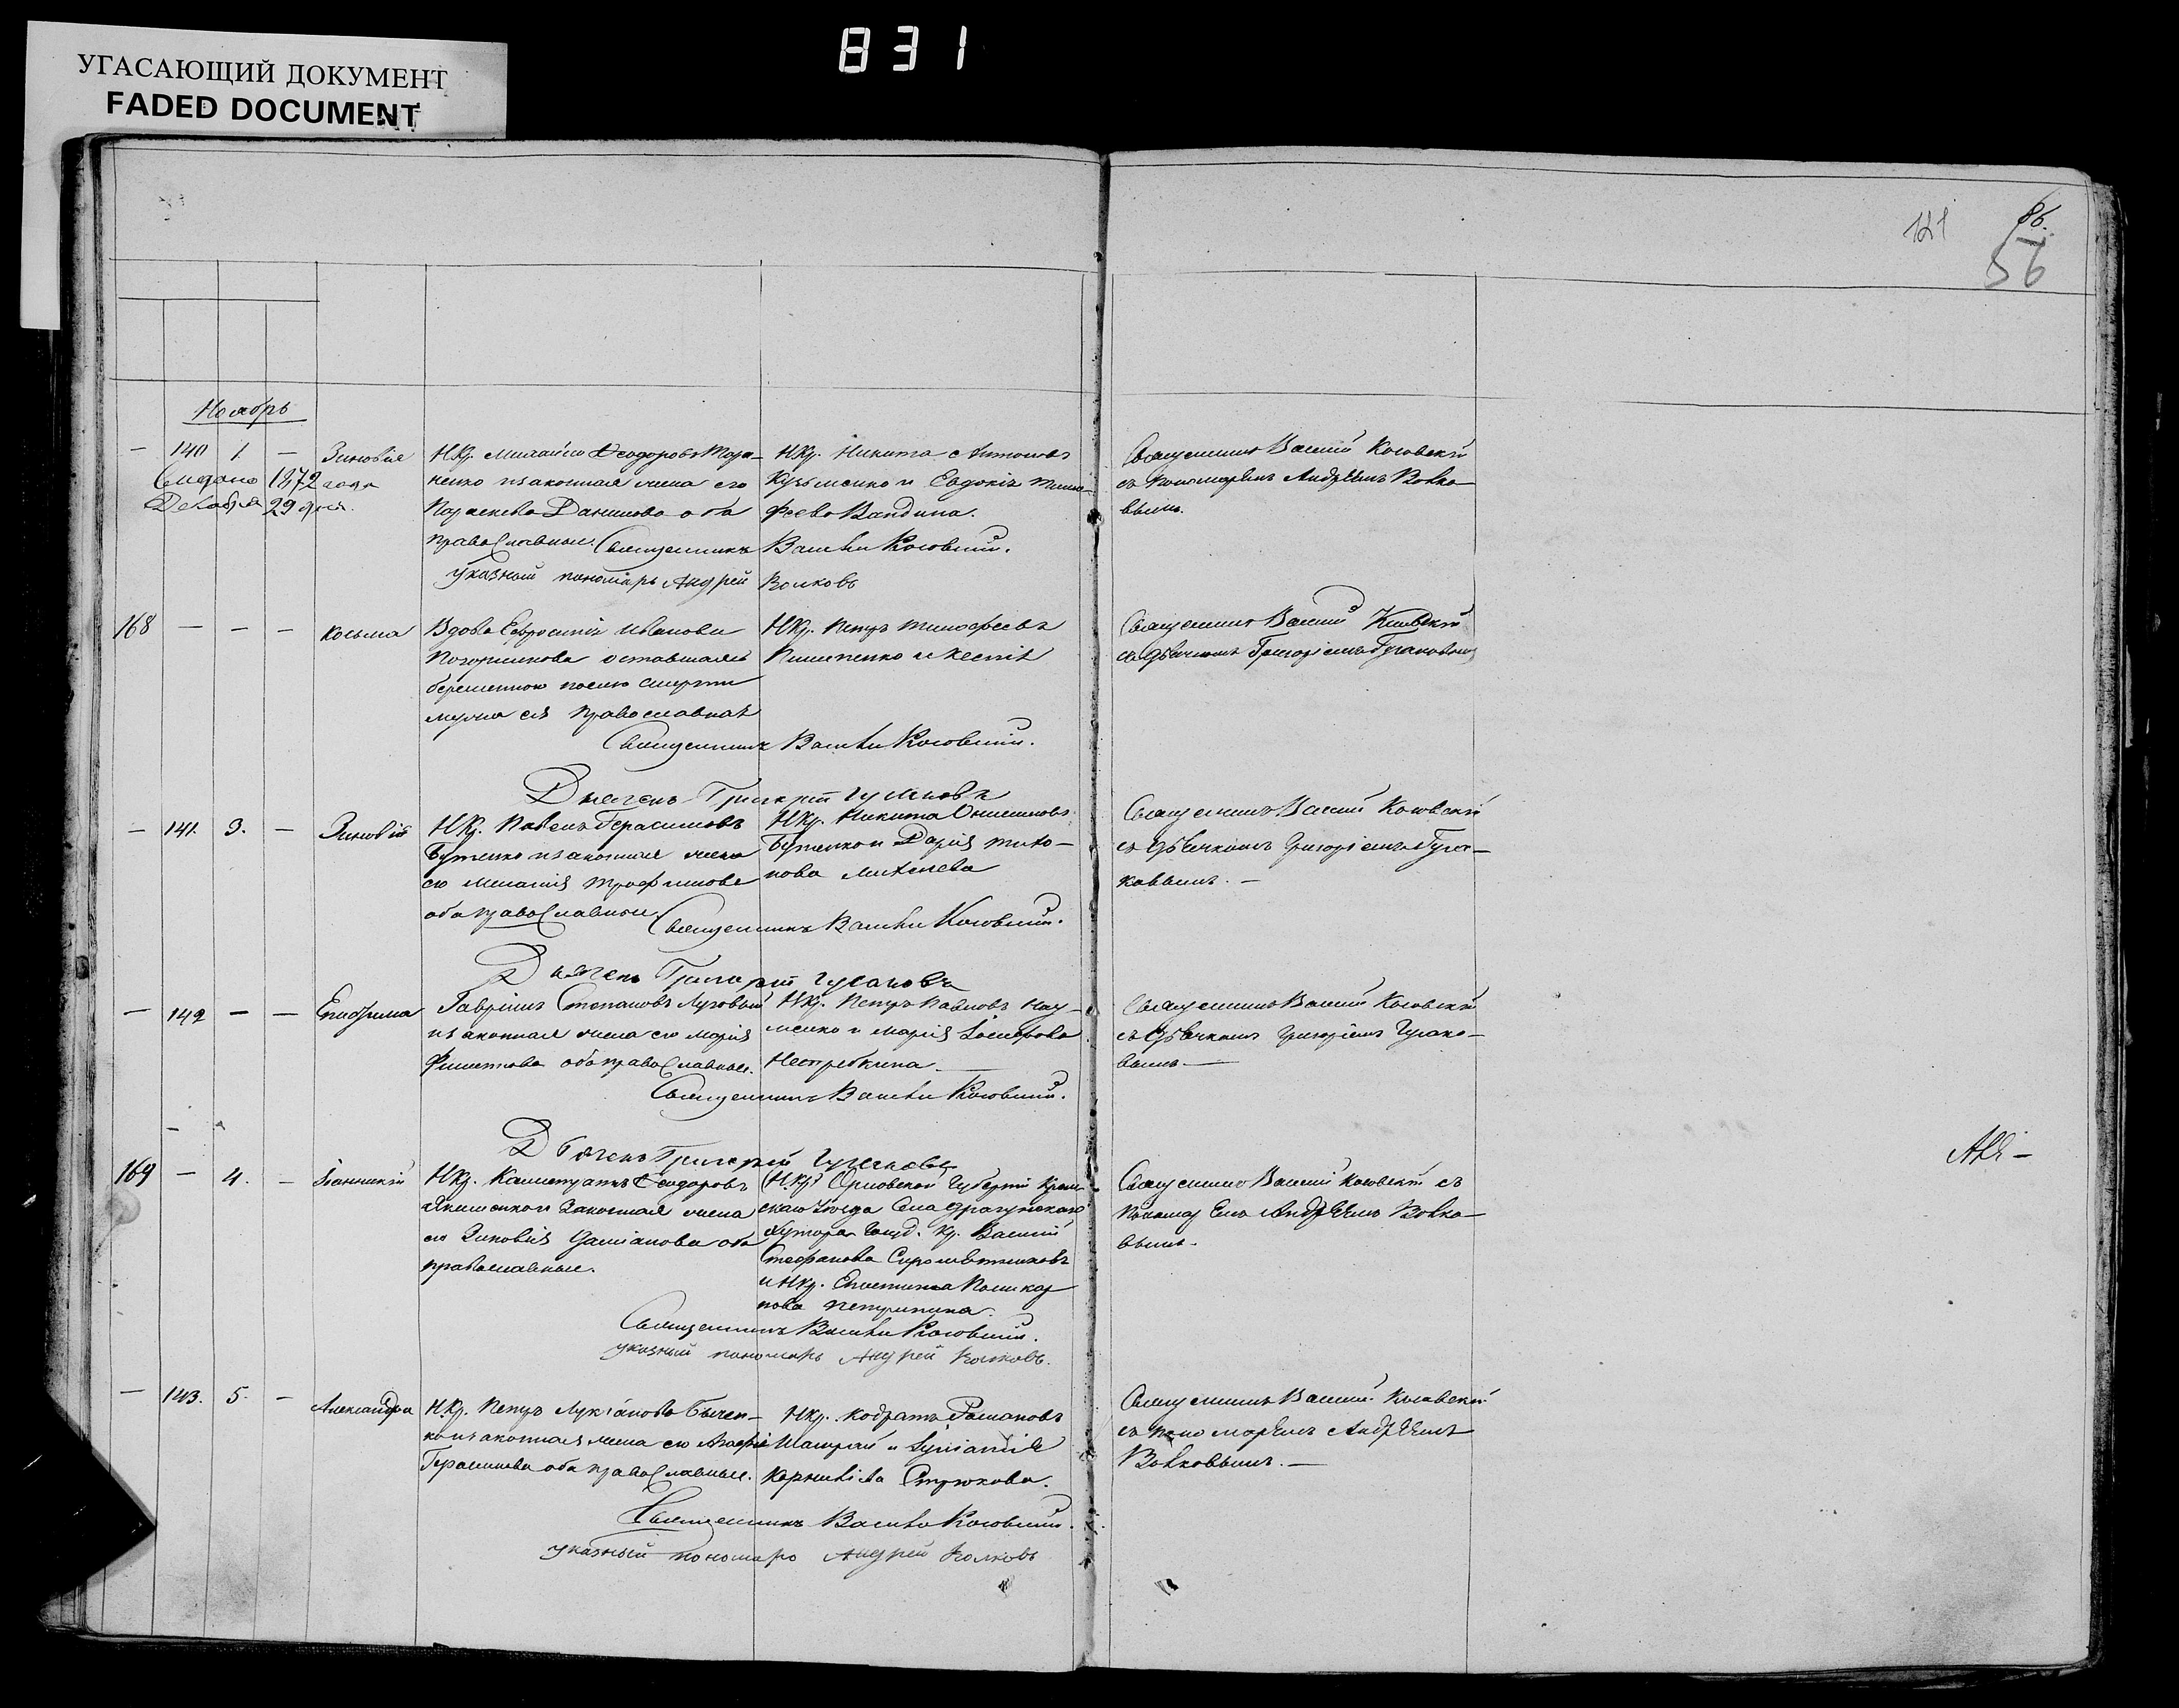 УГАСАЮЩИЙ ДОКУМЕНТ
FADED DOCUMENT
831
121
86.
56
Ноябрь
— 140 1. — Зиновія
1872 года
Декабря 29 дня.
НКр. Михайло Ѳеодоровъ
законная жена его
Параскева Данилова оба
православные.
НКр. Никита Антоновъ
Кузьменко и Евдокія Тимо-
феева
Священникъ Василій Косовскій
съ пономаремъ Андреемъ Волко-
вымъ.
Священникъ Василій Косовскій.
указный пономарь Андрей Волковъ
168 — — — Косьма
Вдова Евфросинія Иванова
оставшаяся
беременною послѣ смерти
мужа ея православная
НКр. Петръ Тимофеевъ
Пилипенко и Ксенія
Священникъ Василій Косовскій
съ дьячкомъ Григоріемъ Гусаковымъ
Священникъ Василій Косовскій.
Дьячекъ Григорій Гусаковъ
— 141. 3. — Зиновій
НКр. Павелъ Герасимовъ
Бутенко и законная жена
его Меланія Трофимова
оба православные.
НКр. Никита Онисимовъ
Бутенко и Дарія Тихо-
нова Михнева
Священникъ Василій Косовскій
съ дьячкомъ Григоріемъ Гуса-
ковымъ. —
Священникъ Василій Косовскій.
Дьячекъ Григорій Гусаковъ
— 142 — —
Гавріилъ Степановъ Луговый
и законная жена его Марія
Филиппова оба православные.
НКр. Петръ Павловъ Нау-
менко и Марія Іосифова
Священникъ Василій Косовскій
съ дьячкомъ Григоріемъ Гусако-
вымъ —
Священникъ Василій Косовскій.
Дьячекъ Григорій Гусаковъ
169 — 4. — Іоанникій
НКр. Калистратъ Ѳеодоровъ
и законная жена
его Зиновія Даміанова оба
православные.
НКр. Орловской Губерніи
уезда Села
хутора Госуд. Кр. Василій
Стефановъ
и НКр. Епистимія Поликар
пова
Священникъ Василій Косовскій съ
пономаремъ Андреемъ Волко-
вымъ.
Священникъ Василій Косовскій.
указный пономарь Андрей Волковъ.
— 143. 5. — Александра
НКр. Петръ Лукіановъ Бычен-
ко и законная жена его Агафія
Герасимова оба православные.
НКр. Кодратъ Романовъ
Шапрай и Іуліанія
Корнилієва Стрюкова.
Священникъ Василій Косовскій
съ пономаремъ Андреемъ
Волковымъ. —
Священникъ Василій Косовскій.
указный пономарь Андрей Волковъ